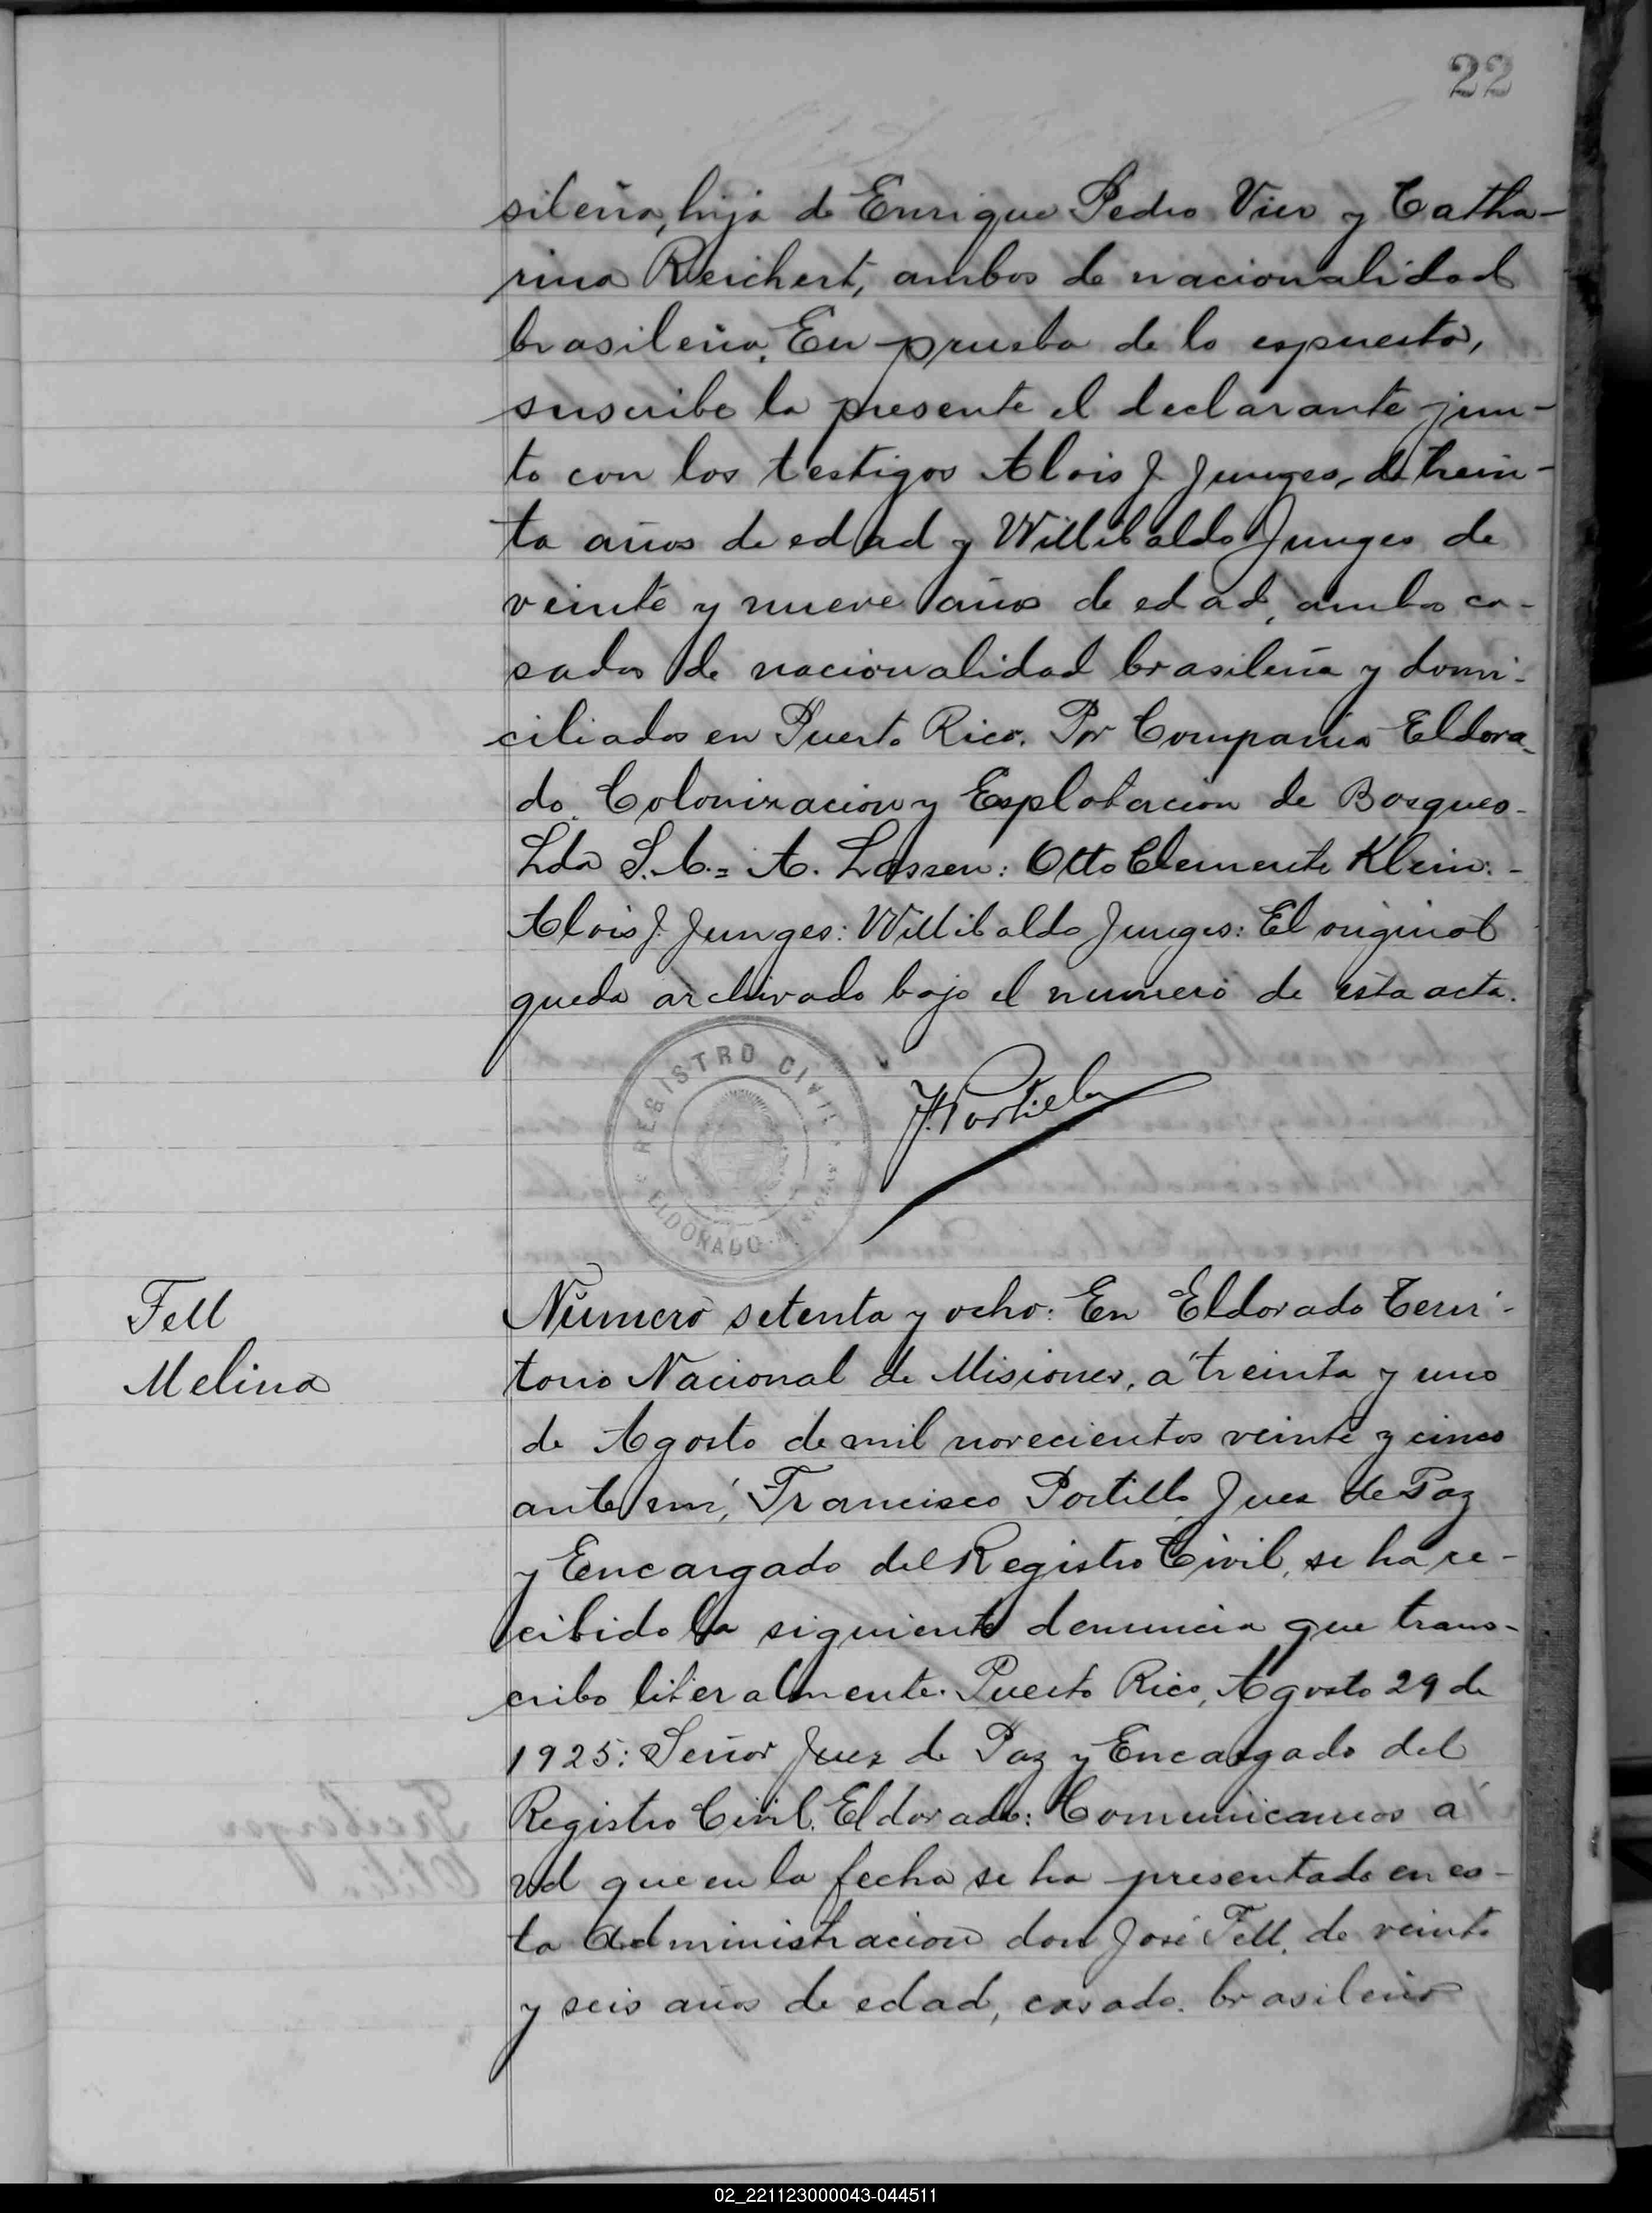 22
sileña, hija de Enrique Pedro Vier y Catha-
rina Reichert, ambos de nacionalidad
brasileña. En prueba de lo espuesto,
suscribe la presente el declarante jun-
to con los testigos Alois J. Junges, de trein-
ta años de edad y Willibaldo Junges de
veinte y nueve años de edad, ambos ca-
sados de nacionalidad brasileña y domi-
ciliados en Puerto Rico. Por Compañia Eldora-
do. Colonizacion y Esplotacion de Bosques-
Lda S.A.= A. Lassen: Otto Clemente Klein:-
Alois J. Junges: Willibaldo Junges: El original
queda archivado bajo el numero de esta acta.
REGISTRO CIVIL
ELDORADO
F. Portillo
Fell
Melina
Número setenta y ocho: En Eldorado Terri-
torio Nacional de Misiones, a treinta y uno
de Agosto de mil novecientos veinte y cinco
ante mi, Francisco Portillo, Juez de Paz
y Encargado del Registro Civil, se ha re-
cibido la siguiente denuncia que trans-
cribo literalmente. Puerto Rico, Agosto 29 de
1925: Señor Juez de Paz y Encargado del
Registro Civil. Eldorado: Comunicamos á
Vd que en la fecha se ha presentado en es-
ta Administracion don José Fell, de veinte
y seis años de edad, casado. brasileño
02_221123000043-044511